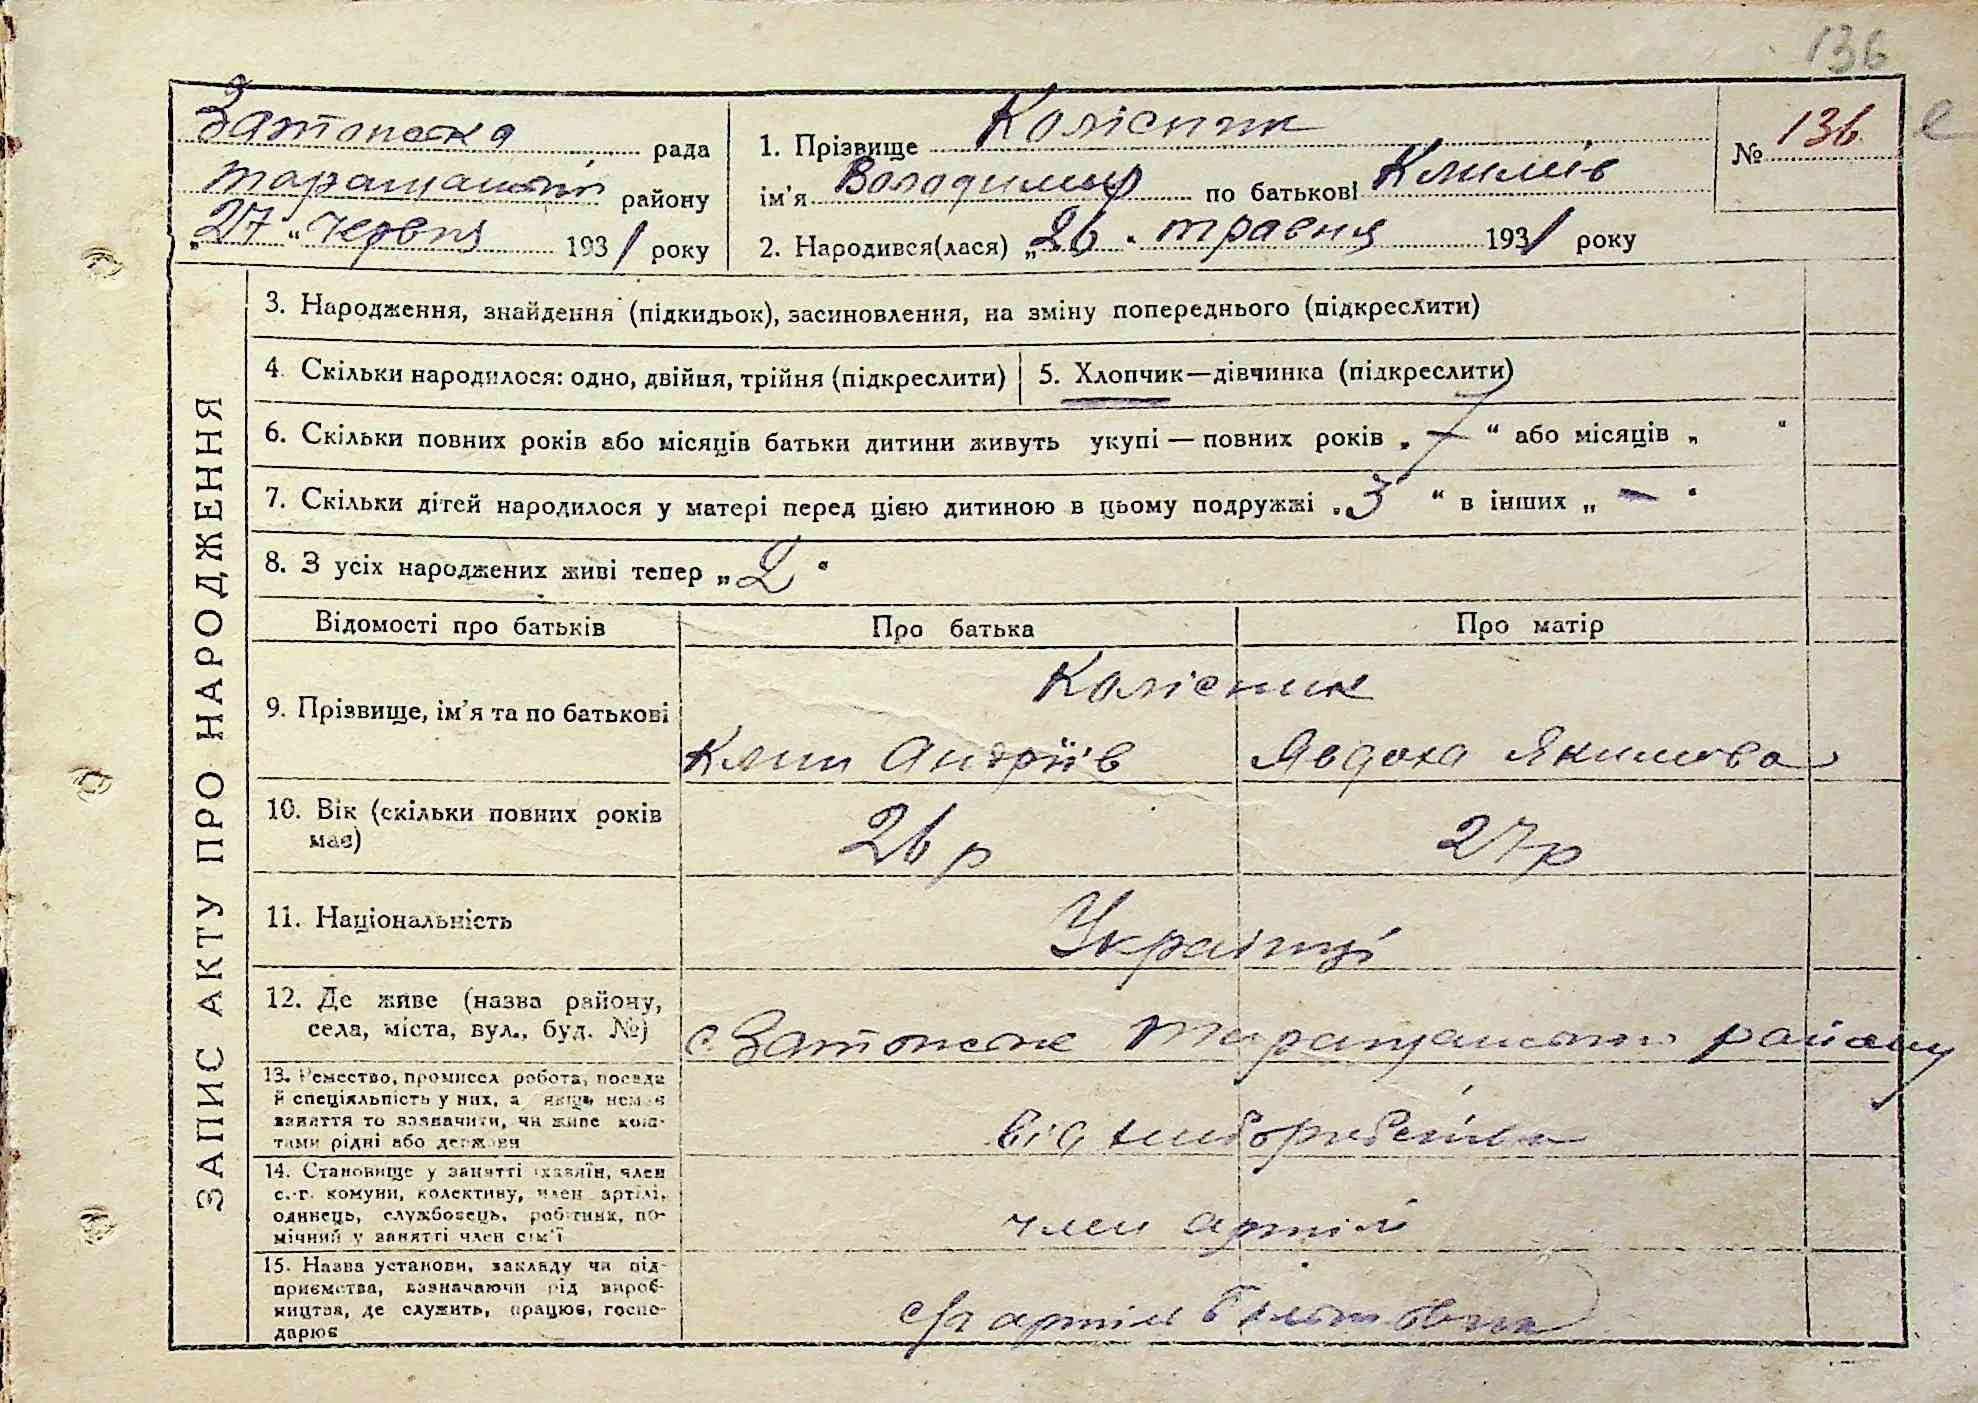 136
Затонска рада
Таращанськ. району
„27“ червня 1931 року
1. Прізвище Колісник
ім'я Володимир по батькові Климів
2. Народився(лася) „26“ травня 1931 року
№ 136
ЗАПИС АКТУ ПРО НАРОДЖЕННЯ
3. Народження, знайдення (підкидьок), засиновлення, на зміну попереднього (підкреслити)
4. Скільки народилося: одно, двійня, трійня (підкреслити)
5. Хлопчик—дівчинка (підкреслити)
6. Скільки повних років або місяців батьки дитини живуть укупі — повних років „7“ або місяців „ “
7. Скільки дітей народилося у матері перед цією дитиною в цьому подружжі „3“ в інших „—“
8. З усіх народжених живі тепер „2“
Відомості про батьків Про батька Про матір
9. Прізвище, ім'я та по батькові
Колісник
Клим Андріїв Явдоха Якимова
10. Вік (скільки повних років має)
26 р 27 р
11. Національність
Українці
12. Де живе (назва району,
села, міста, вул., буд. №)
с Затонське Таращанськ. району
13. Ремество, промисел робота, посада
й спеціяльність у них, а якщо немає
заняття то зазначити, чи живе кош-
тами рідні або держави
від хлiборобства
14. Становище у занятті (хазяїн, член
с.-г. комуни, колективу, член артілі,
одинець, службовець, робітник, по-
мічний у занятті член сім'ї
член артілі
15. Назва установи, закладу чи під-
приємства, зазначаючи рід вироб-
ництва, де служить, працює, госпо-
дарює
с/г артіль Більшовик